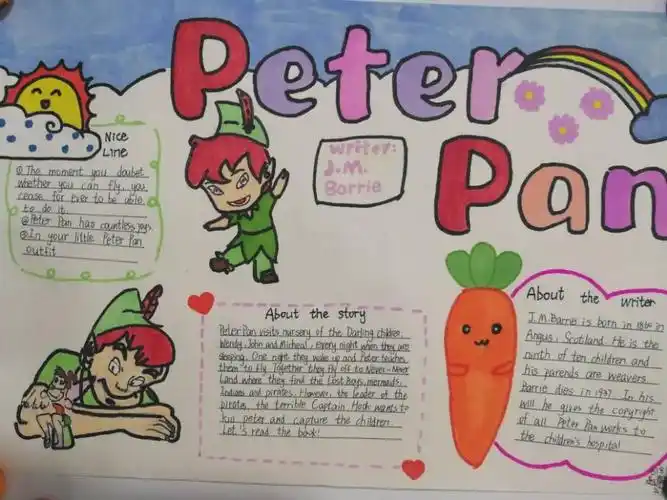 Peter
Pan
writer:
J.M.
Barrie
Nice
Line
① The moment you doubet
whether you can fly, you
cease for ever to be able
to do it
② Peter Pan has countless joys.
③ In your little Peter Pan
outfit
About the story
Peter Pan visits nursery of the Darling children,
Wendy, John and Micheal, every night when they are
sleeping. One night they wake up and Peter teaches
them to fly. Together they fly off to Never-Never
Land where they find the Lost Boys, mermaids,
Indians and pirates. However, the leader of the
pirates, the terrible Captain Hook wants to
kill peter and capture the children.
Let's read the book!
About the writer
J.M.Barrie is born in 1860 in
Angus, Scotland. He is the
ninth of ten children and
his parents are weavers.
Barrie dies in 1937. In his
will he gives the copyright
of all Peter Pan works to
the children's hospital